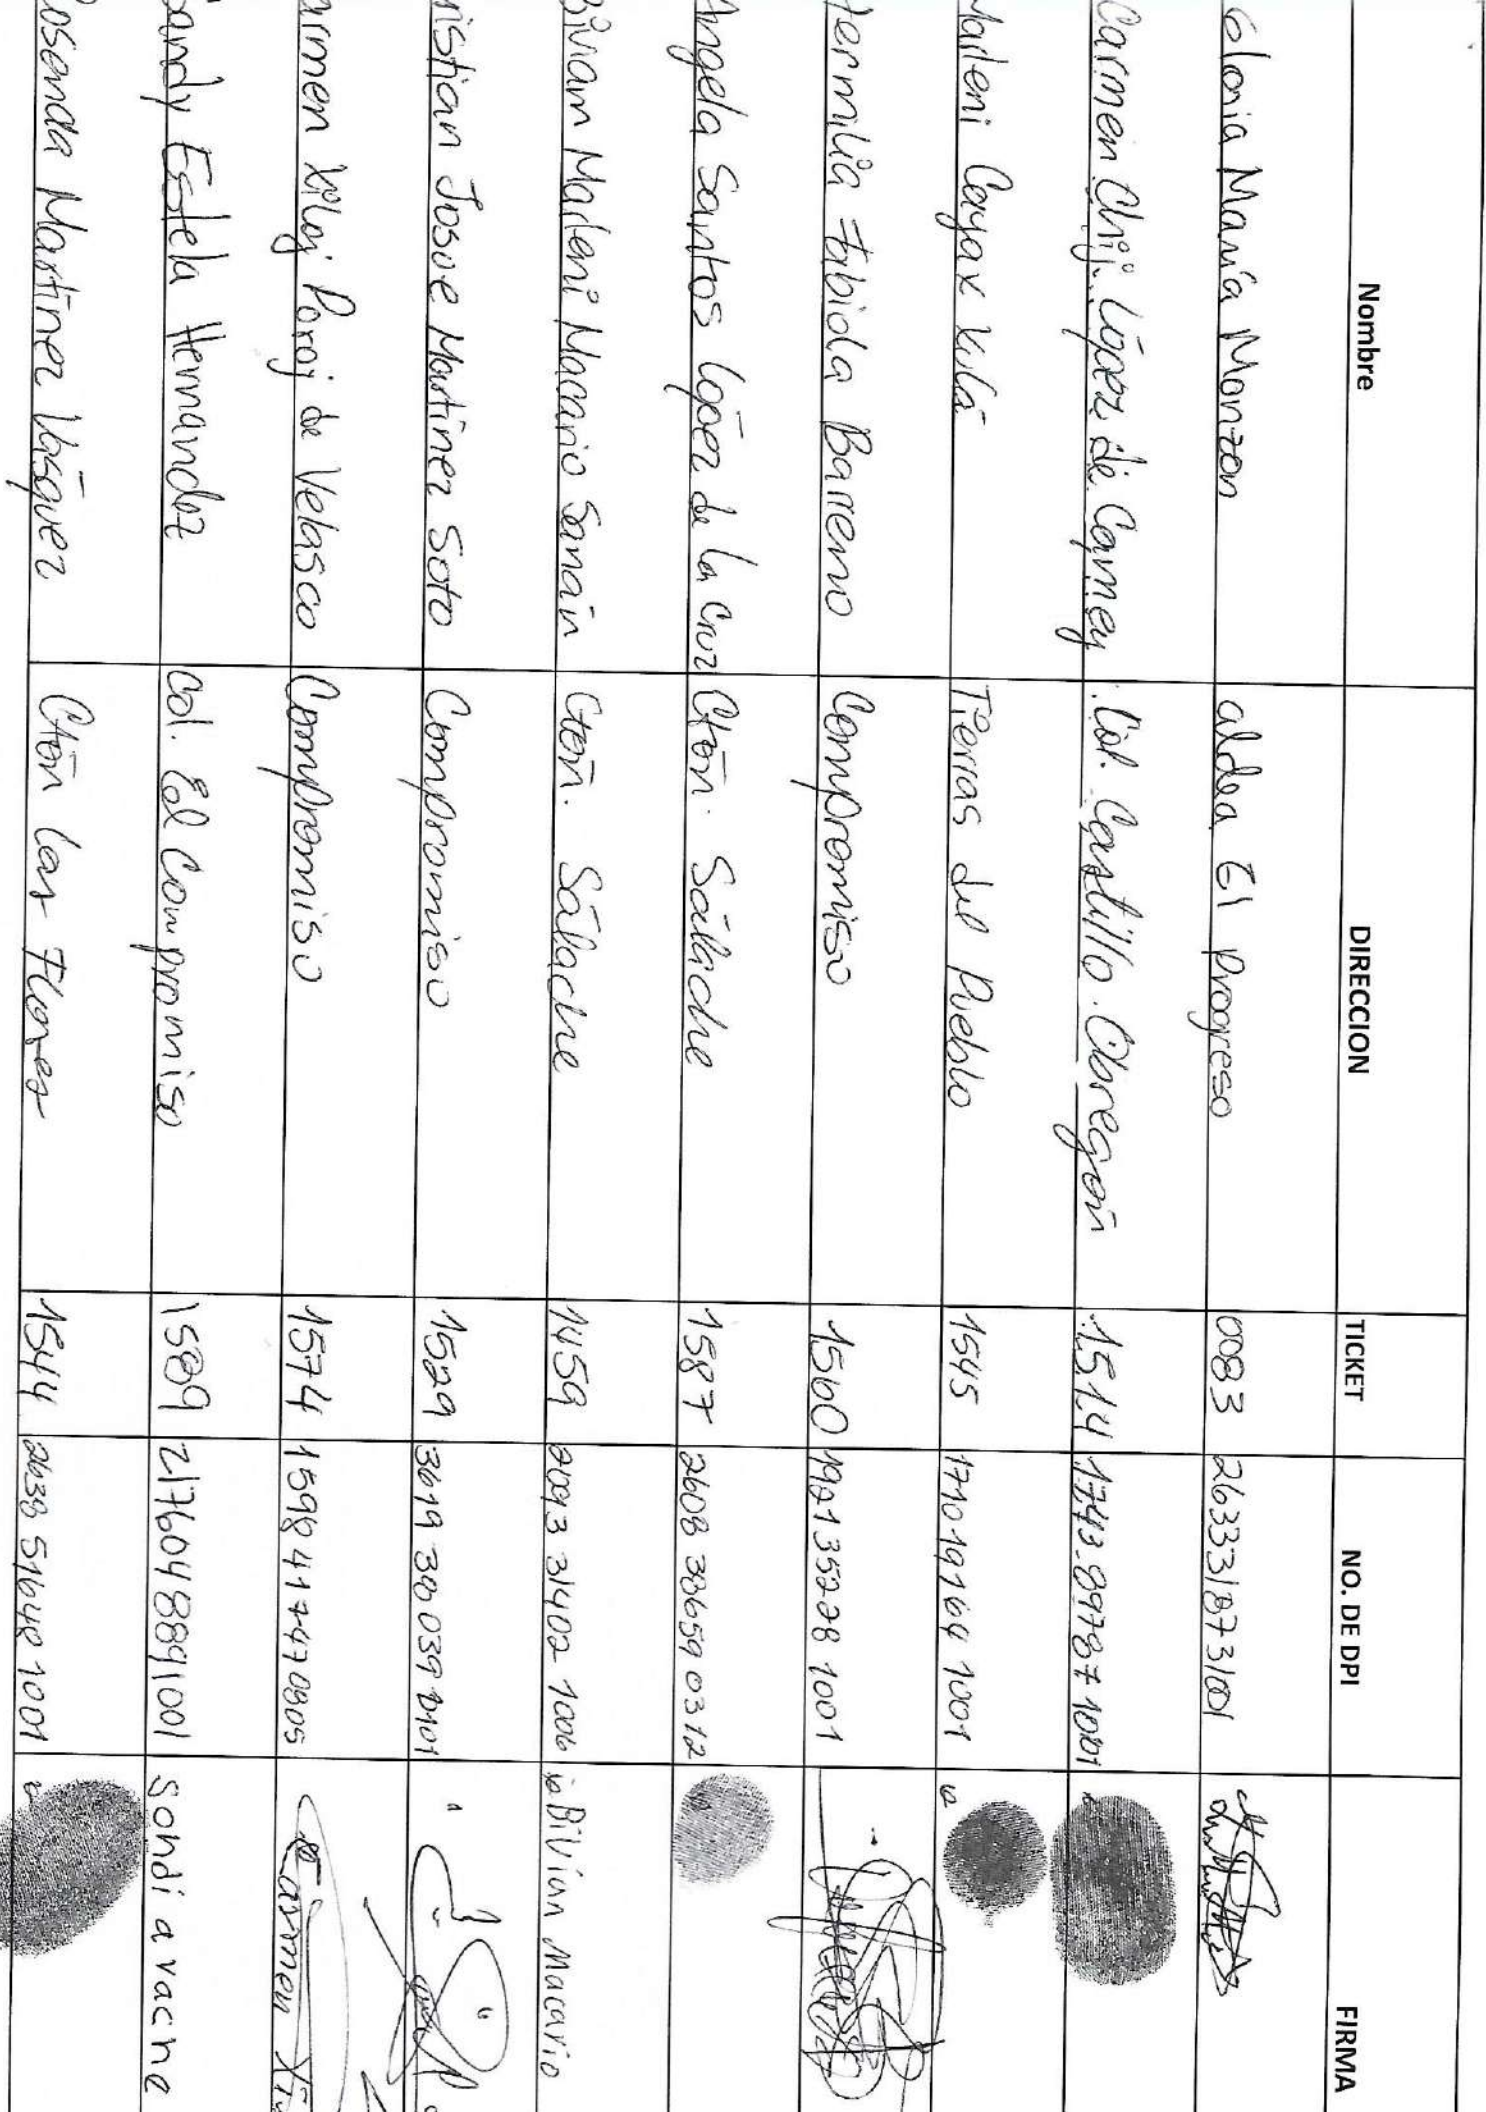 Nombre DIRECCION TICKET NO. DE DPI FIRMA
Gloria María Monzon aldea El progreso 0083 2633318731001
Carmen Chij López de Camey Col. Castillo Obregón 1514 1743 89787 1001
Marleni Cayax Xulá Tierras del Pueblo 1545 1710 19164 1001
Hermilia Fabiola Barreno Compromiso 1560 1921 35228 1001
Angela Santos López de la Cruz Ctón. Sálache 1587 2608 38659 0312
Biviam Marleni Macario Sanán Ctón. Sálache 1459 2093 31402 1006 Bivian Macario
ristian Josue Martínez Soto Compromiso 1529 3619 38039 0101
armen Xiloj Poroj de Velasco Compromiso 1574 1598 41747 0805 Carmen Xi
andy Estela Hernandez Col. El Compromiso 1589 2176048891001 Sondi a vache
osenda Martínez Vásquez Ctón las Flores 1544 2638 51648 1001